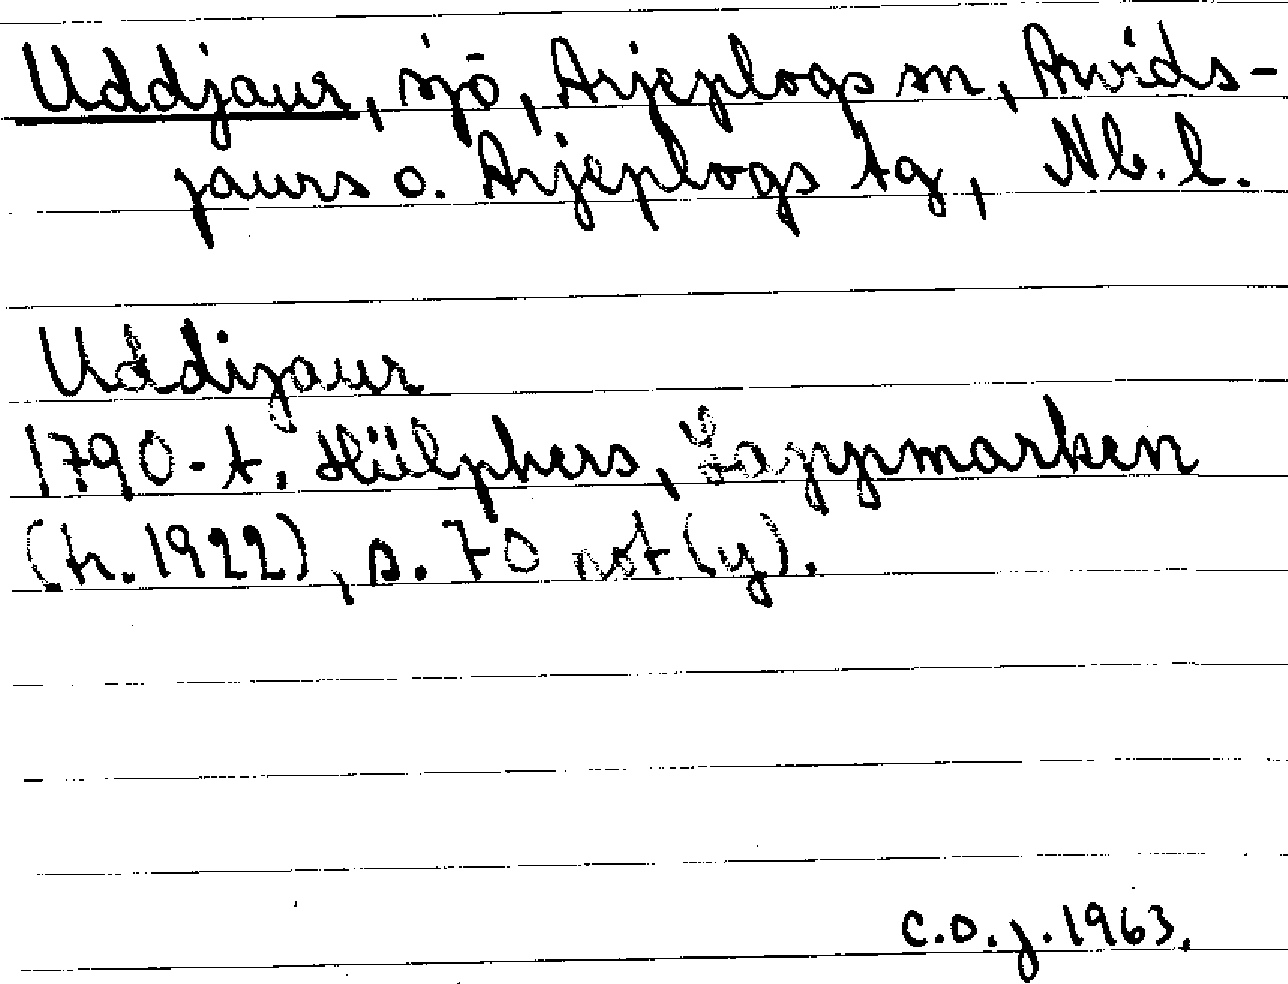 Uddjaur, sjö, Arjeplogs sn, Arvids-
jaurs o. Arjeplogs tg, Nb. l.
Uddijaur
1790-t. Hülphers, Lappmarken
(tr. 1922), s. 70 not (y).
C.O.J. 1963.